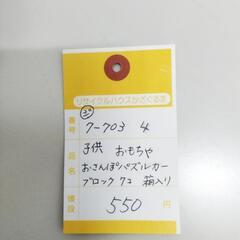 リサイクルハウスかざぐるま
番号
7-703 4
品名
子供 おもちゃ
おさんぽパズルカー
ブロック7コ 箱入り
値段
550円